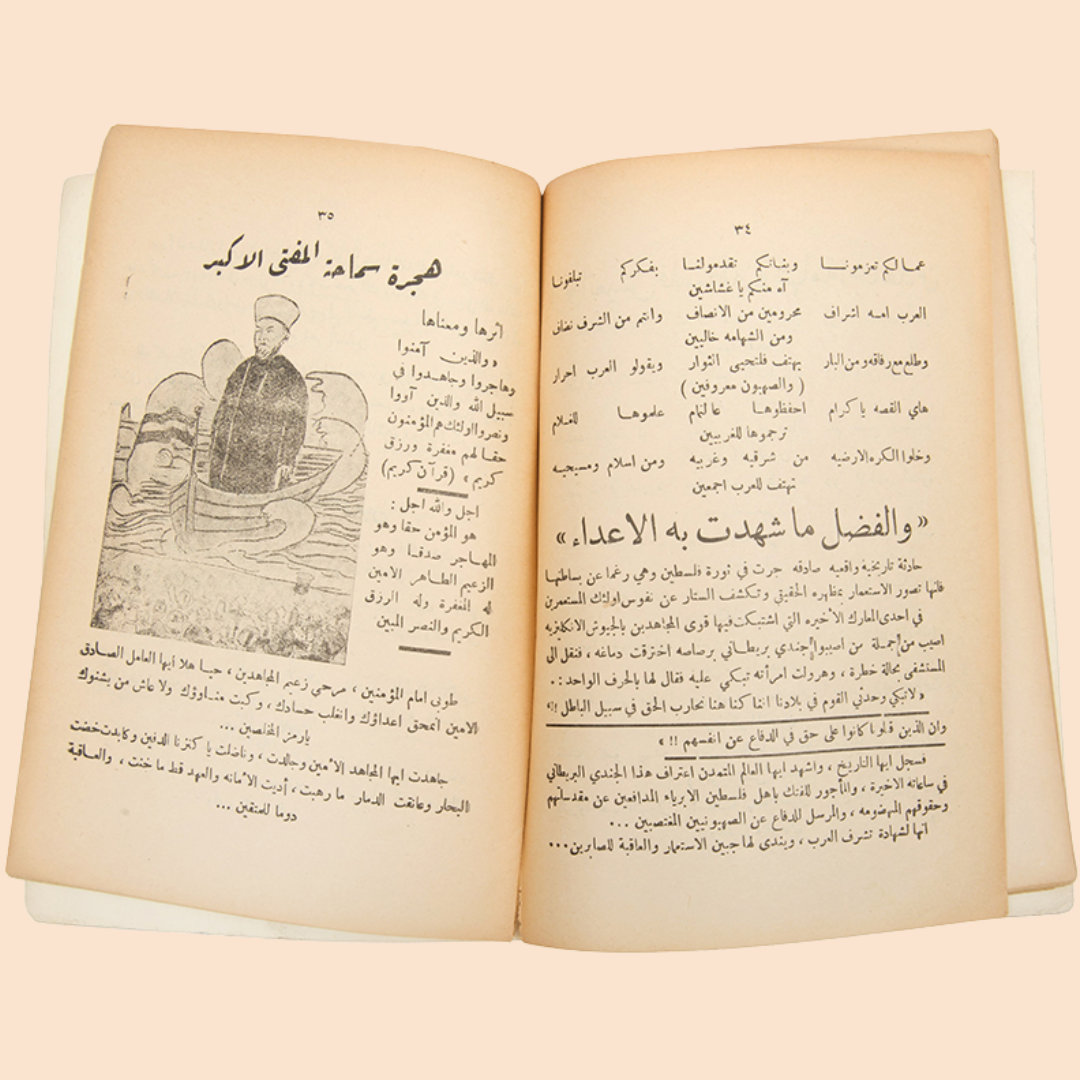 ٣٤
عمالكم تعزمونا وبناتكم تقدمولنا بفكركم تبلفونا
آه منكم يا غشاشين
العرب امه اشراف محرومين من الانصاف وانتم من الشرف نضاف
ومن الشهامه خاليين
وطلع مع رفاقه ومن البار يهتف فلتحيى الثوار ويقولو العرب احرار
( والصهيون معروفين )
هاي القصه يا كرام احفظوها عالتمام علموها للغلام
ترجموها للغربيين
وخلوا الكره الارضيه من شرقيه وغربيه ومن اسلام ومسيحيه
تهتف للعرب اجمعين
« والفضل ما شهدت به الاعداء »
حادثة تاريخية واقعيه صادقه جرت في ثورة فلسطين وهي رغما عن بساطتها
فانها تصور الاستعمار بمظهره الحقيقي وتكشف الستار عن نفوس اولئك المستعمرين
في احدى المعارك الأخيره التي اشتبكت فيها قوى المجاهدين بالجيوش الانكليزيه
اصيب من جملة من اصيبوا جندي بريطاني برصاصه اخترقت دماغه ، فنقل الى
المستشفى بحالة خطرة ، وهرولت امرأته تبكي عليه فقال لها بالحرف الواحد : .
« لاتبكي وحدتي القوم في بلادنا اننا كنا هنا نحارب الحق في سبيل الباطل !!
وان الذين قاتلونا كانوا على حق في الدفاع عن انفسهم !! »
فسجل ايها التاريخ ، واشهد ايها العالم المتمدن اعتراف هذا الجندي البريطاني
في ساعاته الاخيرة ، والمأجور للفتك باهل فلسطين الابرياء المدافعين عن مقدساتهم
وحقوقهم المهضومه ، والمرسل للدفاع عن الصهيونيين المغتصبين ...
انها لشهادة تشرف العرب ، ويندى لها جبين الاستعمار والعاقبة للصابرين ...
٣٥
هجرة سماحة المفتى الاكبر
اثرها ومعناها
« والذين آمنوا
وهاجروا وجاهدوا في
سبيل الله والذين آووا
ونصروا اولئك هم المؤمنون
حقا لهم مغفرة ورزق
كريم » (قرآن كريم)
اجل والله اجل :
هو المؤمن حقا وهو
المهاجر صدقا وهو
الزعيم الطاهر الامين
له المغفرة وله الرزق
الكريم والنصر المبين
طوبى امام المؤمنين ، مرحى زعيم المجاهدين ، حيا هلا ايها العامل الصادق
الامين انمحق اعداؤك وانقلب حسادك ، وكبت مناوؤك ولا عاش من يشنوك
يارمز المخلصين ...
جاهدت ايها المجاهد الأمين وجالدت ، وناضلت يا كنزنا الدفين وكابدت خضت
البحار وعانقت الدمار ما رهبت ، أديت الأمانه والعهد قط ما خنت ، والعاقبة
دوما للمتقين ...